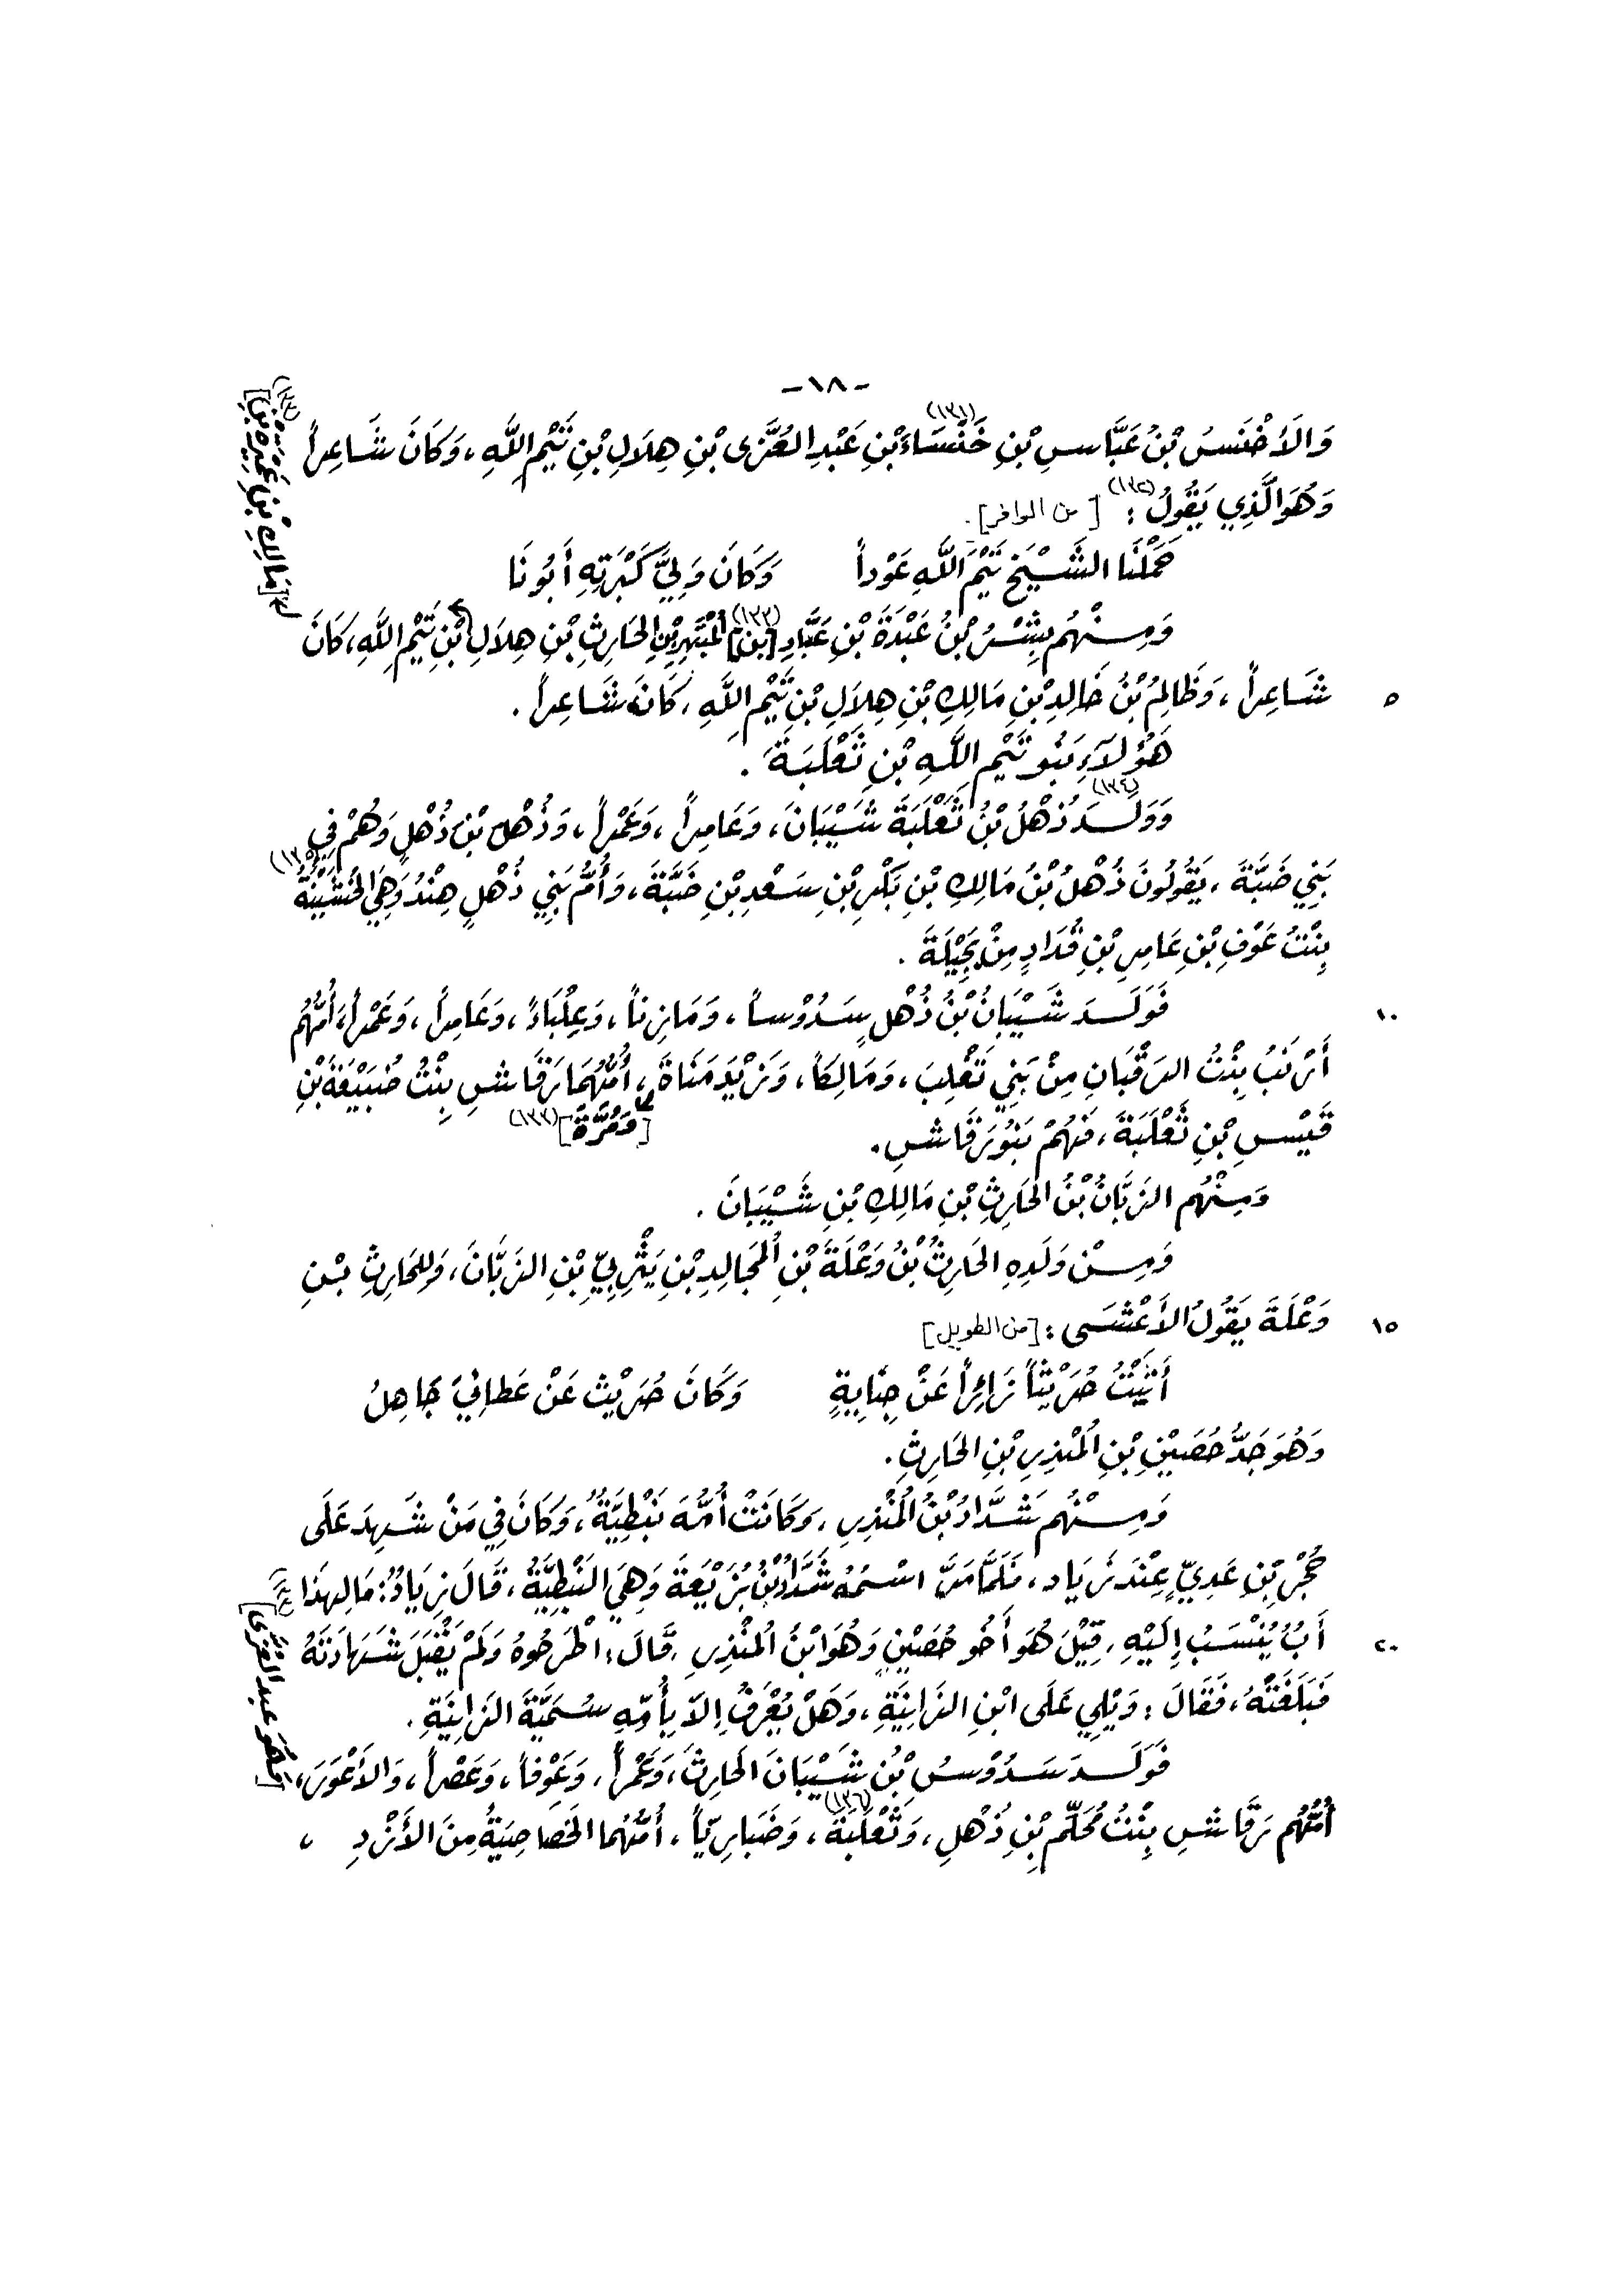 -١٨-
وَالأَخْنَسُ بْنُ عَبَّاسِ بْنِ خَنْسَاءَ (١٣١) بْنِ عَبْدِ العُزَّى بْنِ هِلَالِ بْنِ تَيْمِ اللَّهِ، وَكَانَ شَاعِراً
وَهُوَ الَّذِي يَقُولُ (١٣٢) : [من الوافر]
حَمَلْنَا الشَّيْخَ تَيْمَ اللَّهِ عَوْداً وَكَانَ وَلِيَّ كَبْرَتِهِ أَبُونَا
وَمِنْهُم بِشْرُ بْنُ عَبْدَةَ بْنِ عَبَّادِ [بن] (١٣٣) المُبَتَّهِرِ بْنِ الحَارِثِ بْنِ هِلَالِ بْنِ تَيْمِ اللَّهِ، كَانَ
٥ شَاعِراً، وَظَالِمُ بْنُ خَالِدِ بْنِ مَالِكِ بْنِ هِلَالِ بْنِ تَيْمِ اللَّهِ، كَانَ شَاعِراً.
هَؤُلَآءِ بَنُو تَيْمِ اللَّهِ بْنِ ثَعْلَبَةَ.
وَوَلَدَ ذُهْلُ بْنُ ثَعْلَبَةَ (١٣٤) شَيْبَانَ، وَعَامِراً، وَعَمْراً، وَذُهْلَ بْنَ ذُهْلٍ وَهُمْ فِي
بَنِي ضَبَّةَ، يَقُولُونَ ذُهْلُ بْنُ مَالِكِ بْنِ بَكْرِ بْنِ سَعْدِ بْنِ ضَبَّةَ، وَأُمُّ بَنِي ذُهْلٍ هِنْدُ وَهِيَ الخُشَيْنَةُ (١٣٥)
بِنْتُ عَوْفِ بْنِ عَامِرِ بْنِ قُدَادٍ مِنْ بَجِيْلَةَ.
١٠ فَوَلَدَ شَيْبَانُ بْنُ ذُهْلٍ سَدُوْساً، وَمَازِناً، وَعِلْبَاءً، وَعَامِراً، وَعَمْراً، أُمُّهُم
أَرْنَبُ بِنْتُ الرَقْبَانِ مِنْ بَنِي تَغْلِبَ، وَمَالِكاً، وَزَيْدَ مَنَاةَ، أُمُّهُمَا رَقَاشِ بِنْتُ ضُبَيْعَةَ بْنِ
[وَمُرَّةَ] (١٣٣)
قَيْسِ بْنِ ثَعْلَبَةَ، فَهُمْ بَنُو رَقَاشِ.
وَمِنْهُم الزَبَّانُ بْنُ الحَارِثِ بْنِ مَالِكِ بْنِ شَيْبَانَ.
وَمِنْ وَلَدِهِ الحَارِثُ بْنُ وَعْلَةَ بْنِ المُجَالِدِ بْنِ يَثْرِبِيِّ بْنِ الزَبَّانَ، وَلِلحَارِثِ بْنِ
١٥ وَعْلَةَ يَقُولُ الأَعْشَى: [من الطويل]
أَتَيْتُ حُرَيْثاً زَائِراً عَنْ جِنَابِيةٍ وَكَانَ حُرَيْثٌ عَنْ عَطائِيَ جَاهِلُ
وَهُوَ جَدُّ حُصَيْنِ بْنِ المُنْذِرِ بْنِ الحَارِثِ.
وَمِنْهُم شَدَّادُ بْنُ المُنْذِرِ، وَكَانَتْ أُمُّهَ نَبْطِيَّةٌ، وَكَانَ فِي مَنْ شَهِدَ عَلَى
حُجْرِ بْنِ عَدِيٍّ عِنْدَ زِيَاد، فَلَمَّا مَرَّ اسْمُهُ شَدَّادُ بْنُ بُزَيْعَةَ وَهِيَ النَبْطِيَّةُ، قَالَ زِيَادٌ: مَا لِهَذَا
٢٠ أَبٌ يُنْسَبُ إِلَيْهِ، قِيْلَ هُوَ أَخُو حُصَيْنٍ وَهُوَ ابْنُ المُنْذِرِ، قَالَ: اطْرَحُوهُ وَلَمْ يَقْبَلَ شَهَادَتَهُ
فَبَلَغَتْهُ، فَقَالَ: وَيْلِي عَلَى ابْنِ الزَانِيَةِ، وَهَلْ يُعْرَفُ إِلاَّ بِأُمِّهِ سُمَيَّةَ الزَانِيَةِ.
فَوَلَدَ سَدُوْسُ بْنُ شَيْبَانَ الحَارِثَ، وَعَمْراً، وَعَوْفاً، وَعَصْراً، وَالأَعْوَرَ،
أُمُّهُم رَقَاشِ بِنْتُ مُحَلِّمِ بْنِ ذُهْلِ، وَثَعْلَبَةَ (١٣٦)، وَضَبَارِيّاً، أُمُّهُما الخَصَاصِيَةُ مِنَ الأَزْدِ،
[مَالِكِ بْنِ عَمِيْرَةَ بْنِ]
[وَهُوَ عبد العُزَّى]